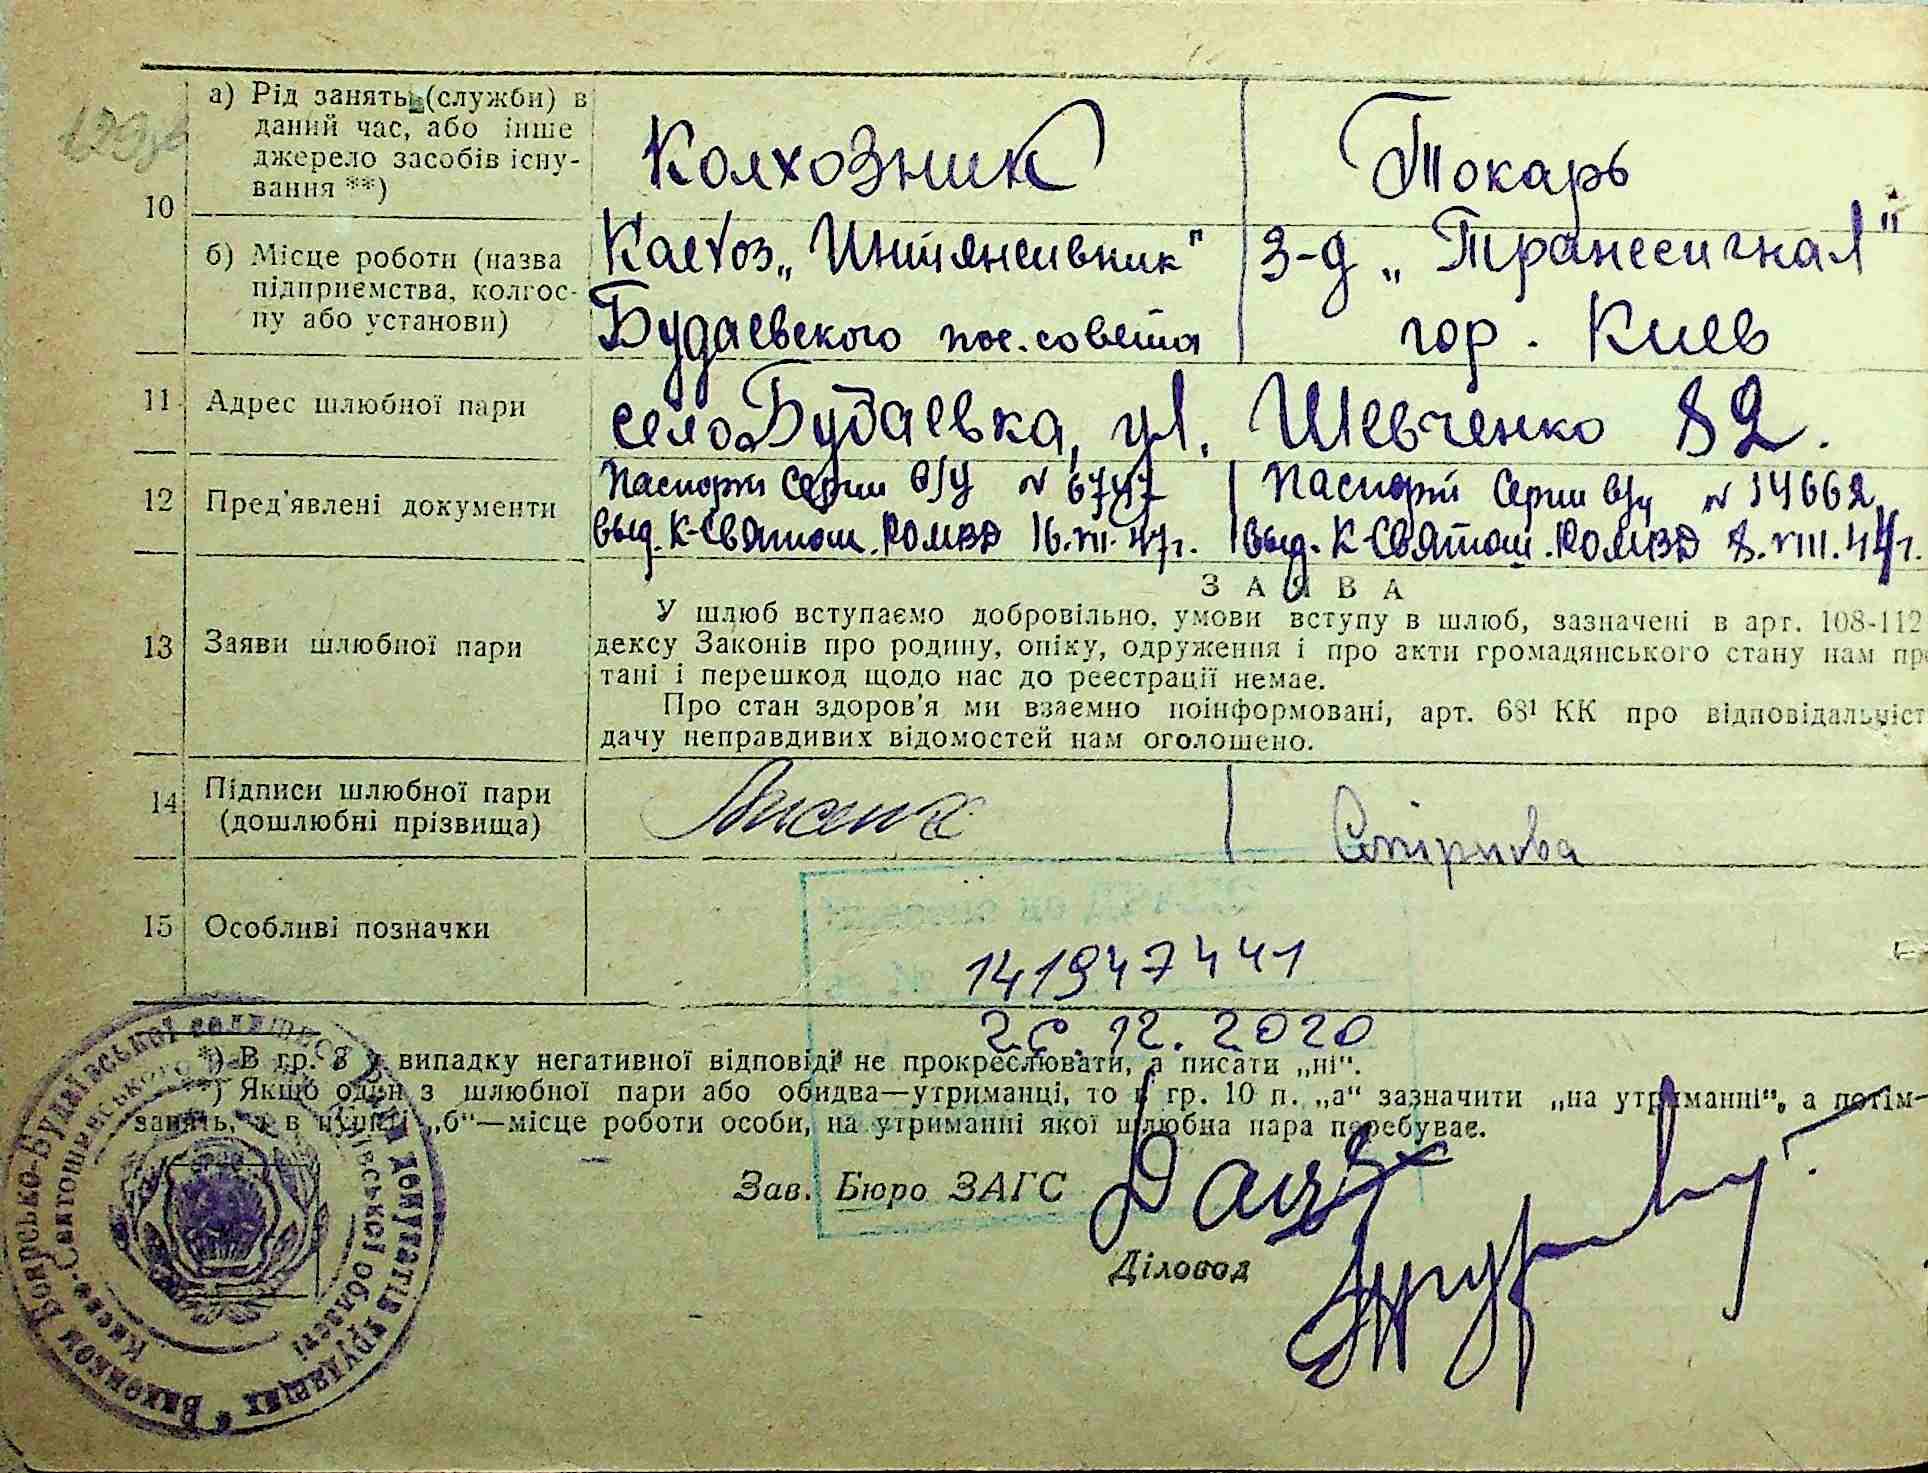 а) Рід занять (службн) в
даний час, або інше
джерело засобів існу-
вання **)
10
Колхозник
Токарь
б) Місце роботи (назва
підприємства, колгос-
пу або установи)
Колхоз „Интенсивник"
Будаевского пос. совета
з-д „Транссигнал"
гор. Киев
11 Адрес шлюбної пари
село Будаевка, ул. Шевченко 82.
12 Пред'явлені документи
Паспорт серии
выд. К-Святош. РОМВД 16.VII.47г.
Паспорт серии № 14662
выд. К-Святош. РОМВД 8.VIII.44г.
13 Заяви шлюбної пари
ЗАЯВА
У шлюб вступаємо добровільно, умови вступу в шлюб, зазначені в арт. 108-112
дексу Законів про родину, опіку, одруження і про акти громадянського стану нам пр
тані і перешкод щодо нас до реєстрації немає.
Про стан здоров'я ми взаємно поінформовані, арт. 68¹ КК про відповідальніст
дачу неправдивих відомостей нам оголошено.
14 Підписи шлюбної пари
(дошлюбні прізвища)
15 Особливі позначки
141947441
26.12.2020
*) В гр. 8 у випадку негативної відповіді не прокреслювати, а писати „ні".
) Якщо один з шлюбної пари або обидва—утриманці, то в гр. 10 п. „а" зазначити „на утриманні", а потім-
занять, а в пункті „б"—місце роботи особи, на утриманні якої шлюбна пара перебуває.
Зав. Бюро ЗАГС
Діловод
Виконком Боярсько-Будаївської селищної Ради депутатів трудящих
Києво-Святошинського
Київської області